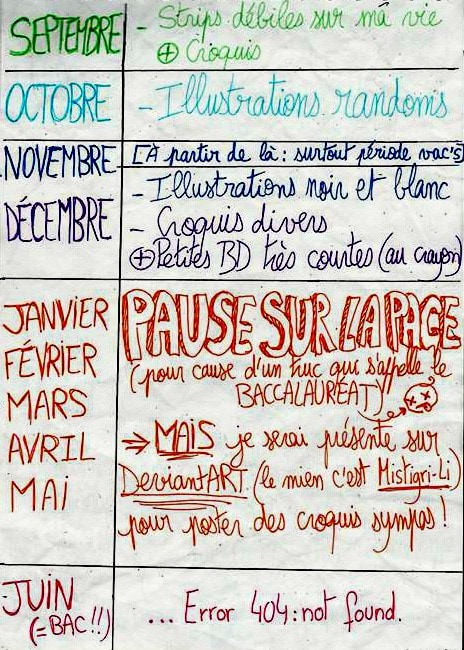 SEPTEMBRE
- Strips débiles sur ma vie
⊕ Croquis
OCTOBRE
- Illustrations randoms
NOVEMBRE
[À partir de là : surtout période vac's]
- Illustrations noir et blanc
DÉCEMBRE
- Croquis divers
⊕ Petites BD très courtes (au crayon)
JANVIER
FÉVRIER
MARS
AVRIL
MAI
PAUSE SUR LA PAGE
(pour cause d'un truc qui s'appelle le
BACCALAURÉAT)
→ MAIS je serai présente sur
DeviantART (le mien c'est Mistigri-Li)
pour poster des croquis sympas !
JUIN
(= BAC !!)
... Error 404 : not found.